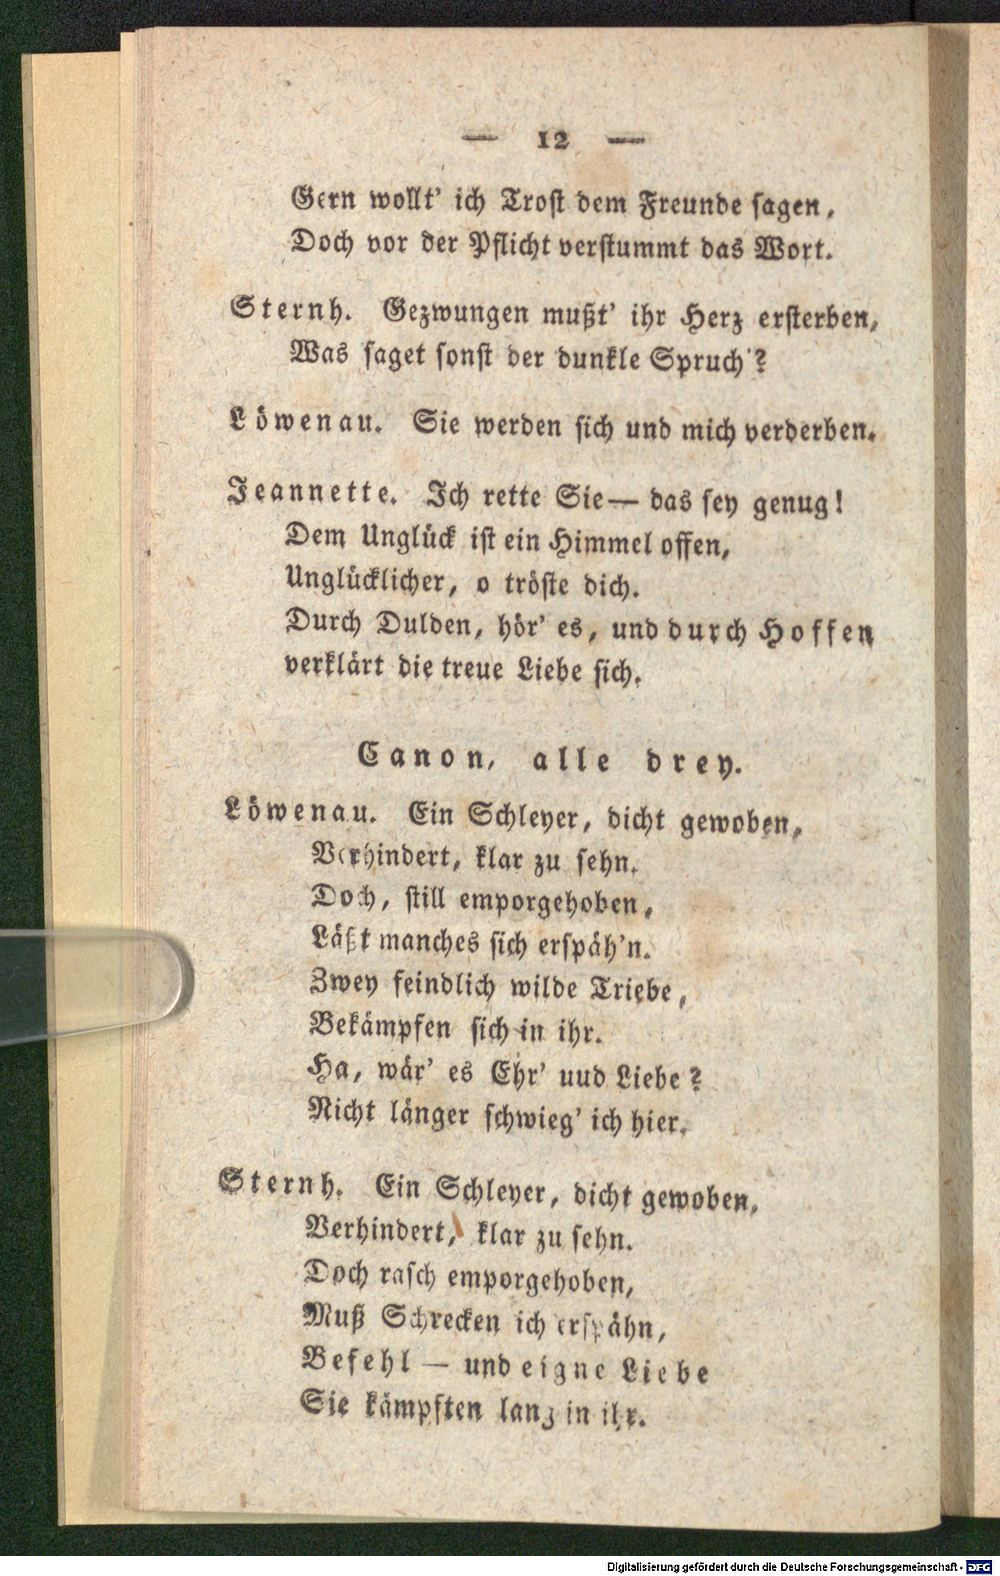 — 12 —
Gern wollt' ich Trost dem Freunde sagen,
Doch vor der Pflicht verstummt das Wort.
Sternh. Gezwungen mußt' ihr Herz ersterben,
Was saget sonst der dunkle Spruch?
Löwenau. Sie werden sich und mich verderben.
Jeannette. Ich rette Sie — das sey genug!
Dem Unglück ist ein Himmel offen,
Unglücklicher, o tröste dich.
Durch Dulden, hör' es, und durch Hoffen
verklärt die treue Liebe sich.
Canon, alle drey.
Löwenau. Ein Schleyer, dicht gewoben,
Verhindert, klar zu sehn.
Doch, still emporgehoben,
Läßt manches sich erspäh'n.
Zwey feindlich wilde Triebe,
Bekämpfen sich in ihr.
Ha, wär' es Ehr' uud Liebe?
Nicht länger schwieg' ich hier.
Sternh. Ein Schleyer, dicht gewoben,
Verhindert, klar zu sehn.
Doch rasch emporgehoben,
Muß Schrecken ich erspähn,
Befehl — und eigne Liebe
Sie kämpften lang in ihr.
Digitalisierung gefördert durch die Deutsche Forschungsgemeinschaft - DFG